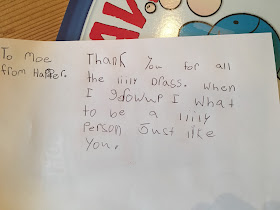 To Moe
from
Thank You for all
the iiily Drass. When
I growup I what
to be a liiiy
Person Just like
You.